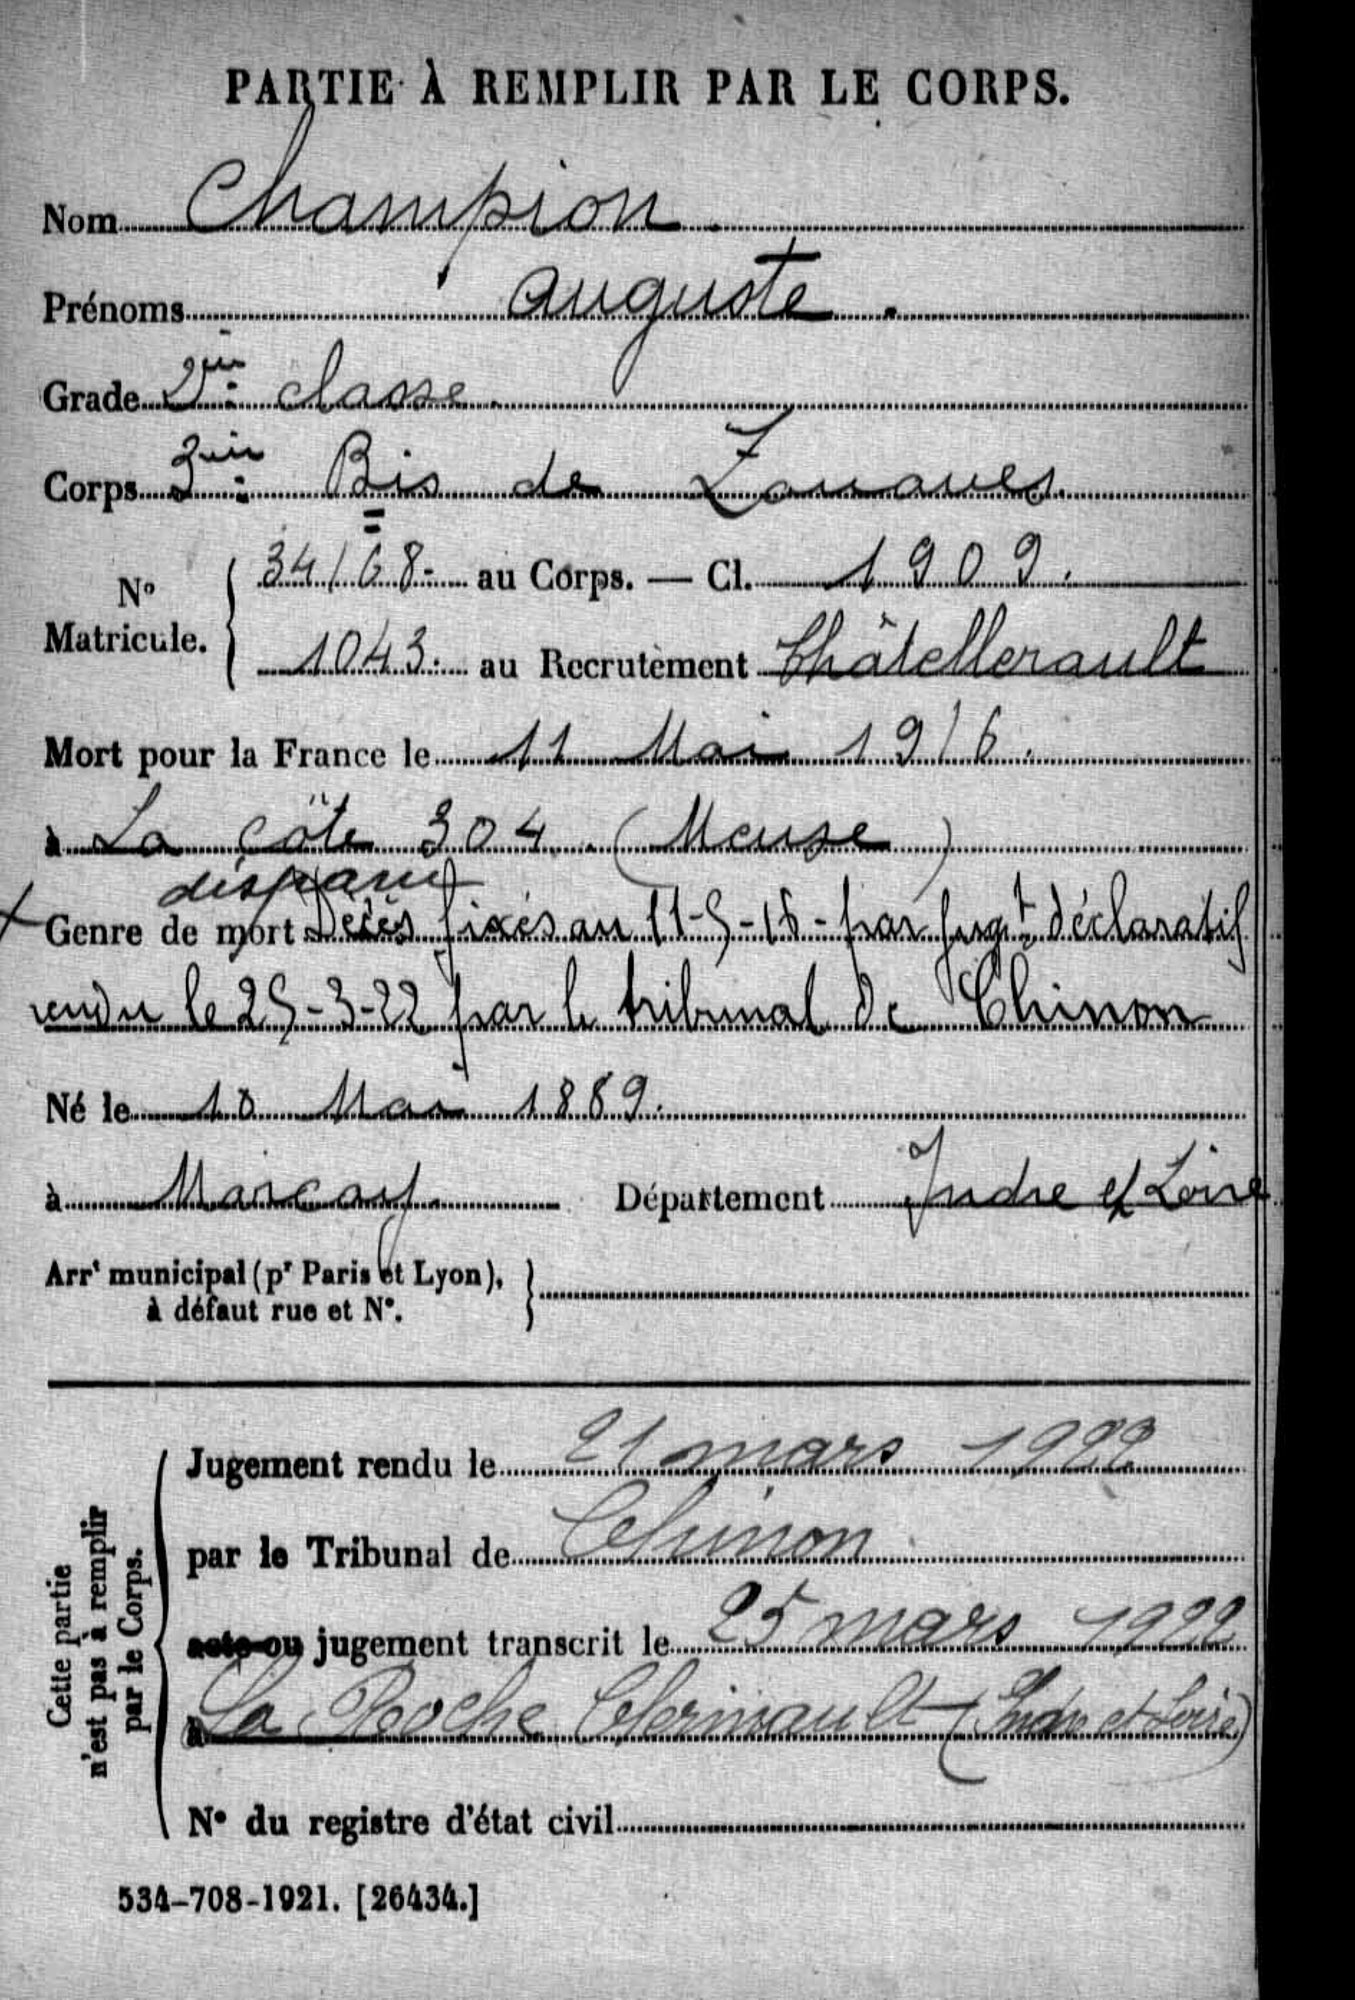 PARTIE À REMPLIR PAR LE CORPS.
Nom Champion
Prénoms Auguste.
Grade 2me classe.
Corps 3me Bis de Zouaves.
No Matricule. 34168- au Corps. — Cl. 1909.
1043. au Recrutement Châtellerault
Mort pour la France le 11 Mai 1916.
à La côte 304. (Meuse)
disparu
Genre de mort Décès fixés au 11-5-16- par jugt déclaratif
rendu le 25-3-22 par le tribunal de Chinon
Né le 10 Mai 1889.
à Marcay. Département Indre et Loire
Arrt municipal (pr Paris et Lyon),
à défaut rue et No.
Cette partie
n'est pas à remplir
par le Corps.
Jugement rendu le 21 mars 1922
par le Tribunal de Chinon
acte ou jugement transcrit le 25 mars 1922
à La Roche Clermault (Indre et Loire)
No du registre d'état civil
534-708-1921. [26434.]